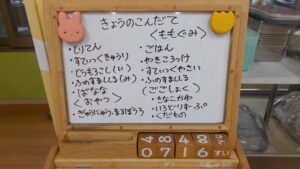 きょうのこんだて
<ももぐみ>
・ひてん
・すてぃっくきゅうり
・とうもろこし(い)
・ふのすましじる(み)
・ばなな
<おやつ>
・ぎゅうにゅう、まるぼうろ
・ごはん
・やきころっけ
・すてぃっくやさい
・ふのすましじる
<ごごしょく>
・きなこかゆ
・いろどりすーぷ
・くだもの
0 7 1 6 すい